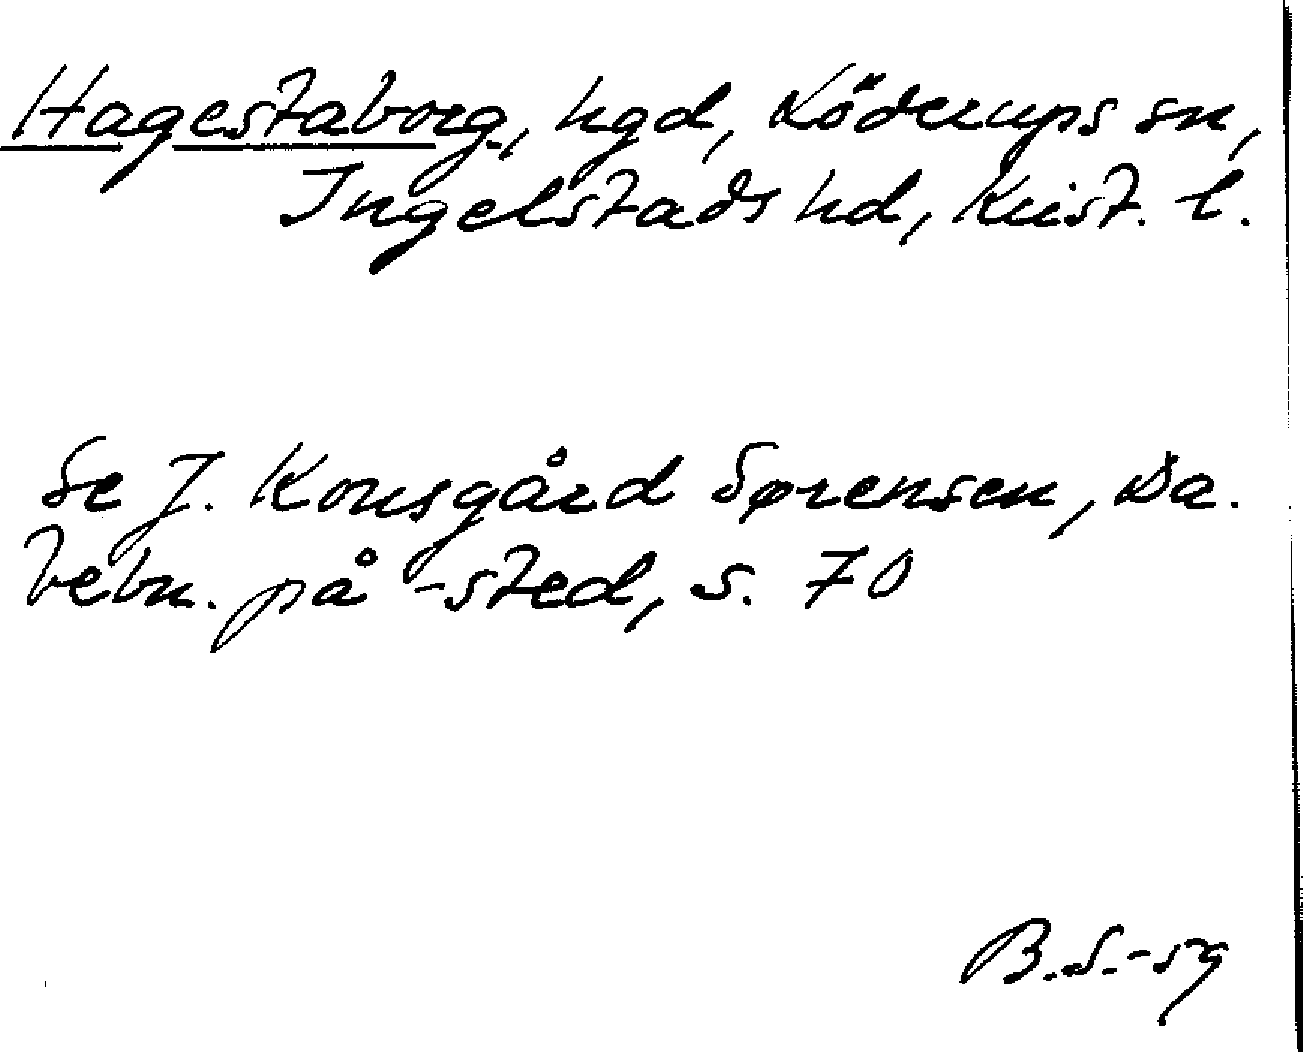 Hagestaborg, hgd, Löderups sn,
Ingelstads hd, Krist. l.
Se J. Kousgård Sørensen, Da.
bebn. på -sted, s. 70
B.S.-59